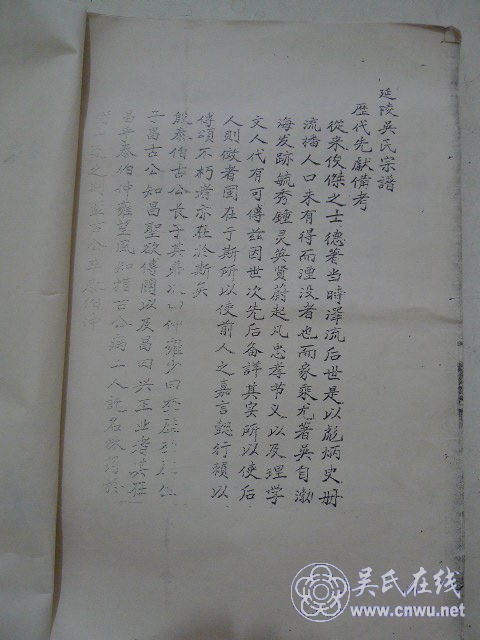 延陵吴氏宗谱
歴代先献備考
從来俊傑之士德著当時澤流后世是以彪炳史册
流播人口未有得而湮没者也而家乘尤著吴自渤
海发跡毓秀鍾灵英賢蔚起凡忠孝节义以及理学
文人代有可傳兹因世次先后备詳其实所以使后
人则傚者固在于斯所以使前人之嘉言懿行賴以
傳頌不朽者亦在於斯矣
殷泰伯古公长子其弟次曰仲雍少曰季歷
子昌古公知昌聖欲傳國以及昌曰兴王业者其在
昌乎泰伯仲雍望風知指古公病二人託名採药於
吴氏在线
www.cnwu.net